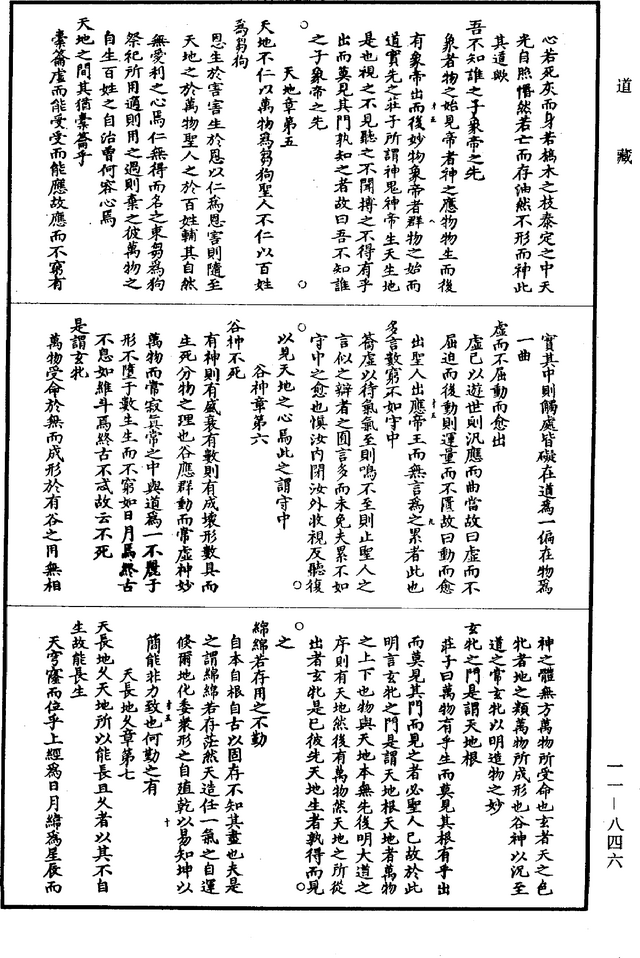 道藏
心若死灰而身若槁木之枝泰定之中天
光自照惛然若亡而存油然不形而神此
其道歟
吾不知誰之子象帝之先
象者物之始見帝者神之應物物生而後
有象帝出而後妙物象帝者群物之始而
道實先之莊子所謂神鬼神帝生天生地
是也視之不見聽之不聞搏之不得有乎
出而莫見其門孰知之者故曰吾不知誰
之子象帝之先
天地章第五
天地不仁以萬物為芻狗聖人不仁以百姓
為芻狗
恩生於害害生於恩以仁為恩害則隨至
天地之於萬物聖人之於百姓輔其自然
無愛利之心焉仁無得而名之束芻為狗
祭祀所用適則用之過則棄之彼萬物之
自生百姓之自治曾何容心焉
天地之間其猶橐籥乎
橐籥虛而能受受而能應故應而不窮有
實其中則觸處皆礙在道為一偏在物為
一曲
虛而不屈動而愈出
虛已以遊世則汎應而曲當故曰虛而不
屈迫而後動則運量而不匱故曰動而愈
出聖人出應帝王而無言為之累者此也
多言數窮不如守中
籥虛以待氣氣至則鳴不至則止聖人之
言似之辯者之囿言多而未免夫累不如
守中之愈也慎汝內閉汝外收視反聽復
以見天地之心焉此之謂守中
谷神章第六
谷神不死
有神則有盛衰有數則有成壞形數具而
生死分物之理也谷應群動而常虛神妙
萬物而常寂真常之中與道為一不麗于
形不墮于數生生而不窮如日月焉終古
不息如維斗焉終古不忒故云不死
是謂玄牝
萬物受命於無而成形於有谷之用無相
神之體無方萬物所受命也玄者天之色
牝者地之類萬物所成形也谷神以況至
道之常玄牝以明造物之妙
玄牝之門是謂天地根
莊子曰萬物有乎生而莫見其根有乎出
而莫見其門而見之者必聖人已故於此
明言玄牝之門是謂天地根天地者萬物
之上下也物與天地本無先後明大道之
序則有天地然後有萬物然天地之所從
出者玄牝是已彼先天地生者孰得而見
之
綿綿若存用之不勤
自本自根自古以固存不知其盡也夫是
之謂綿綿若存茫然天造任一氣之自運
倏爾地化委眾形之自殖乾以易知坤以
簡能非力致也何勤之有
天長地久章第七
天長地久天地所以能長且久者以其不自
生故能長生
天穹窿而位乎上經為日月緯為星辰而
一一—八四六